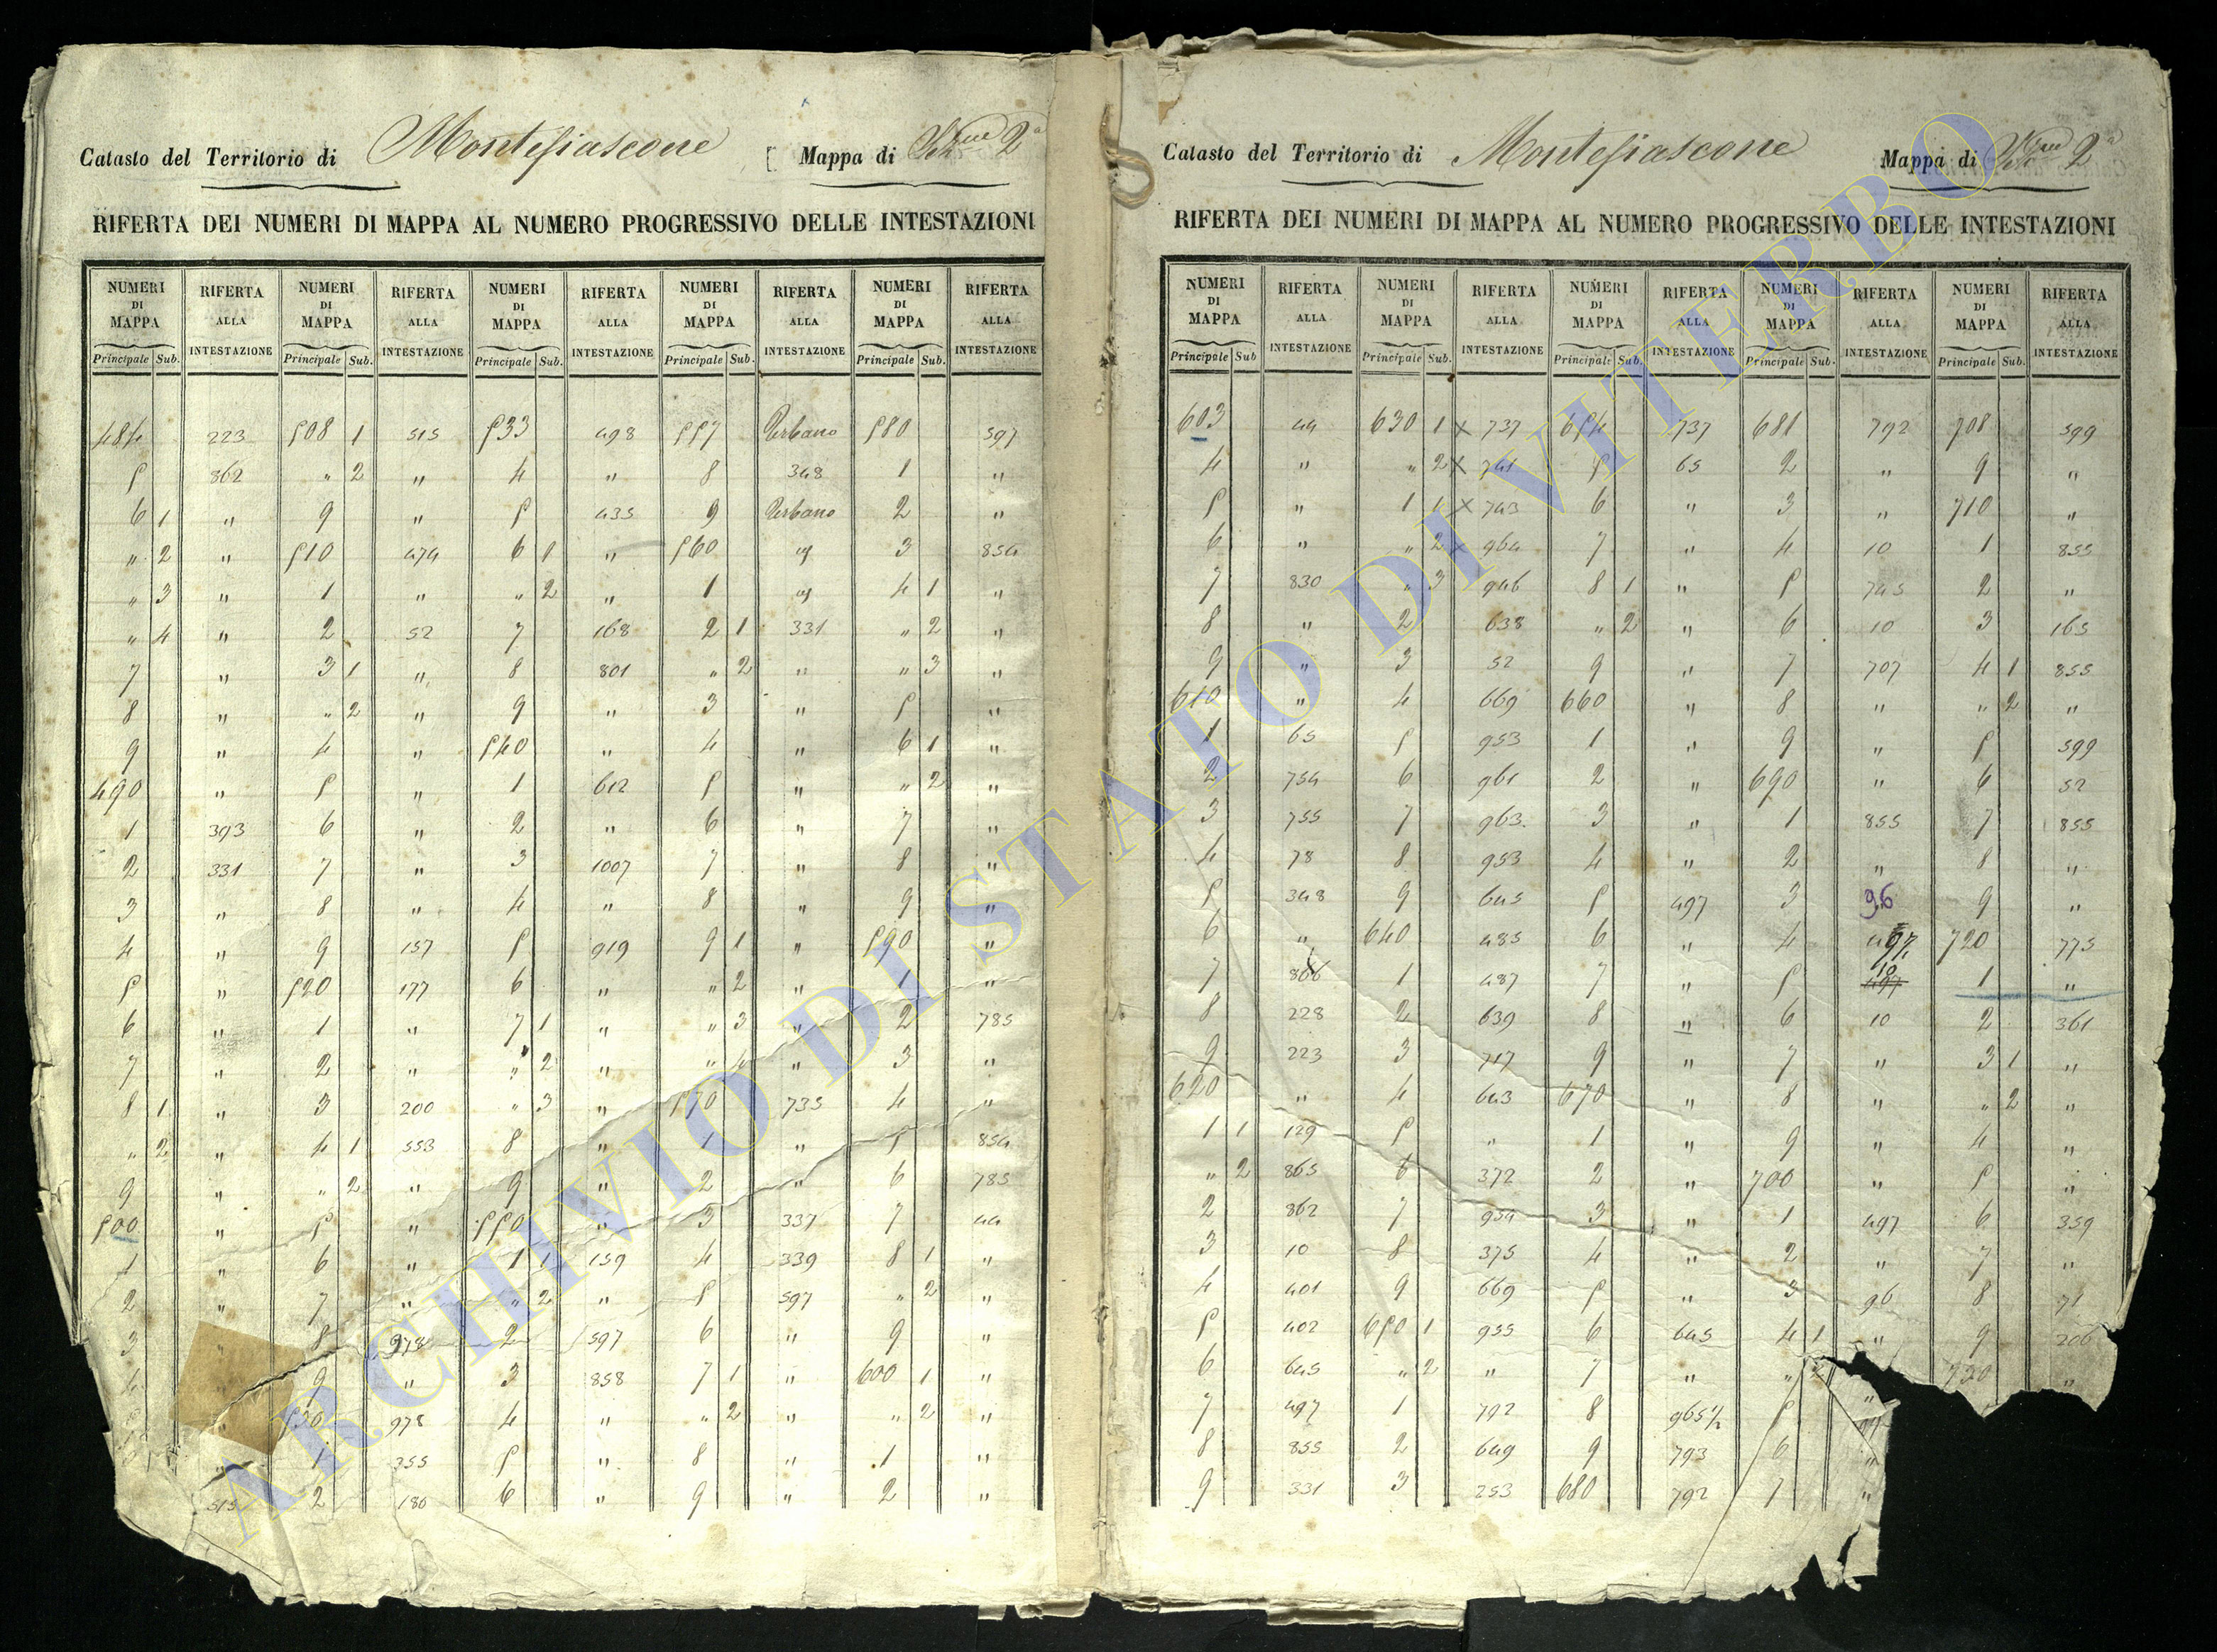 Catasto del Territorio di Montefiascone Mappa di Sez.ne 2a
RIFERTA DEI NUMERI DI MAPPA AL NUMERO PROGRESSIVO DELLE INTESTAZIONI
NUMERI DI MAPPA RIFERTA ALLA INTESTAZIONE NUMERI DI MAPPA RIFERTA ALLA INTESTAZIONE NUMERI DI MAPPA RIFERTA ALLA INTESTAZIONE NUMERI DI MAPPA RIFERTA ALLA INTESTAZIONE NUMERI DI MAPPA RIFERTA ALLA INTESTAZIONE
Principale Sub. Principale Sub. Principale Sub. Principale Sub. Principale Sub.
484 223 508 1 515 533 498 557 Urbano 580 597
5 862 " 2 " 4 " 8 348 1 "
6 1 " 9 " 5 435 9 Urbano 2 "
" 2 " 510 474 6 1 " 560 " 3 854
" 3 " 1 " " 2 " 1 " 4 1 "
" 4 " 2 52 7 168 2 1 331 " 2 "
7 " 3 1 " 8 801 " 2 " " 3 "
8 " " 2 " 9 " 3 " 5 "
9 " 4 " 540 " 4 " 6 1 "
490 " 5 " 1 612 5 " " 2 "
1 393 6 " 2 " 6 " 7 "
2 331 7 " 3 1007 7 " 8 "
3 " 8 " 4 " 8 " 9 "
4 " 9 157 5 919 9 1 " 590 "
5 " 520 177 6 " " 2 " 1 "
6 " 1 " 7 1 " " 3 " 2 785
7 " 2 " " 2 " " 4 " 3 "
8 1 " 3 200 " 3 " 570 735 4 "
" 2 " 4 1 553 8 " 1 " 5 854
9 " " 2 " 9 " 2 " 6 785
500 " 5 " 550 " 3 337 7 44
1 " 6 " 1 1 159 4 339 8 1 "
2 " 7 " " 2 " 5 597 " 2 "
3 " 8 978 2 597 6 " 9 "
4 " 9 " 3 858 7 1 " 600 1 "
" 530 978 4 " " 2 " " 2 "
" 1 355 5 " 8 " 1 "
515 2 180 6 " 9 " 2 "
Catasto del Territorio di Montefiascone Mappa di Sez.ne 2a
RIFERTA DEI NUMERI DI MAPPA AL NUMERO PROGRESSIVO DELLE INTESTAZIONI
NUMERI DI MAPPA RIFERTA ALLA INTESTAZIONE NUMERI DI MAPPA RIFERTA ALLA INTESTAZIONE NUMERI DI MAPPA RIFERTA ALLA INTESTAZIONE NUMERI DI MAPPA RIFERTA ALLA INTESTAZIONE NUMERI DI MAPPA RIFERTA ALLA INTESTAZIONE
Principale Sub Principale Sub. Principale Sub. Principale Sub. Principale Sub.
603 44 630 1 x 737 654 737 681 792 708 599
4 " " 2 x 741 5 65 2 " 9 "
5 " 1 1 x 743 6 " 3 " 710 "
6 " " 2 x 964 7 " 4 10 1 855
7 830 " 3 946 8 1 " 5 745 2 "
8 " 2 638 " 2 " 6 10 3 165
9 " 3 52 9 " 7 707 4 1 855
610 " 4 669 660 " 8 " " 2 "
1 65 5 953 1 " 9 " 5 599
2 754 6 961 2 " 690 " 6 52
3 755 7 963 3 " 1 855 7 855
4 78 8 953 4 " 2 " 8 "
5 348 9 645 5 497 3 96 9 "
6 " 640 485 6 " 4 497 720 775
7 866 1 487 7 " 5 10 1 "
8 228 2 639 8 " 6 10 2 361
9 223 3 717 9 " 7 " 3 1 "
620 " 4 643 670 " 8 " " 2 "
1 1 129 5 " 1 " 9 " 4 "
" 2 865 6 372 2 " 700 " 5 "
2 862 7 954 3 " 1 497 6 359
3 10 8 375 4 " 2 " 7 "
4 401 9 669 5 " 3 96 8 71
5 402 650 1 955 6 645 4 1 " 9 206
6 645 " 2 " 7 " " 2 " 730 "
7 497 1 792 8 965 1/2 5
8 855 2 649 9 793 6 "
9 331 3 253 680 792 7 "
ARCHIVIO DI STATO DI VITERBO